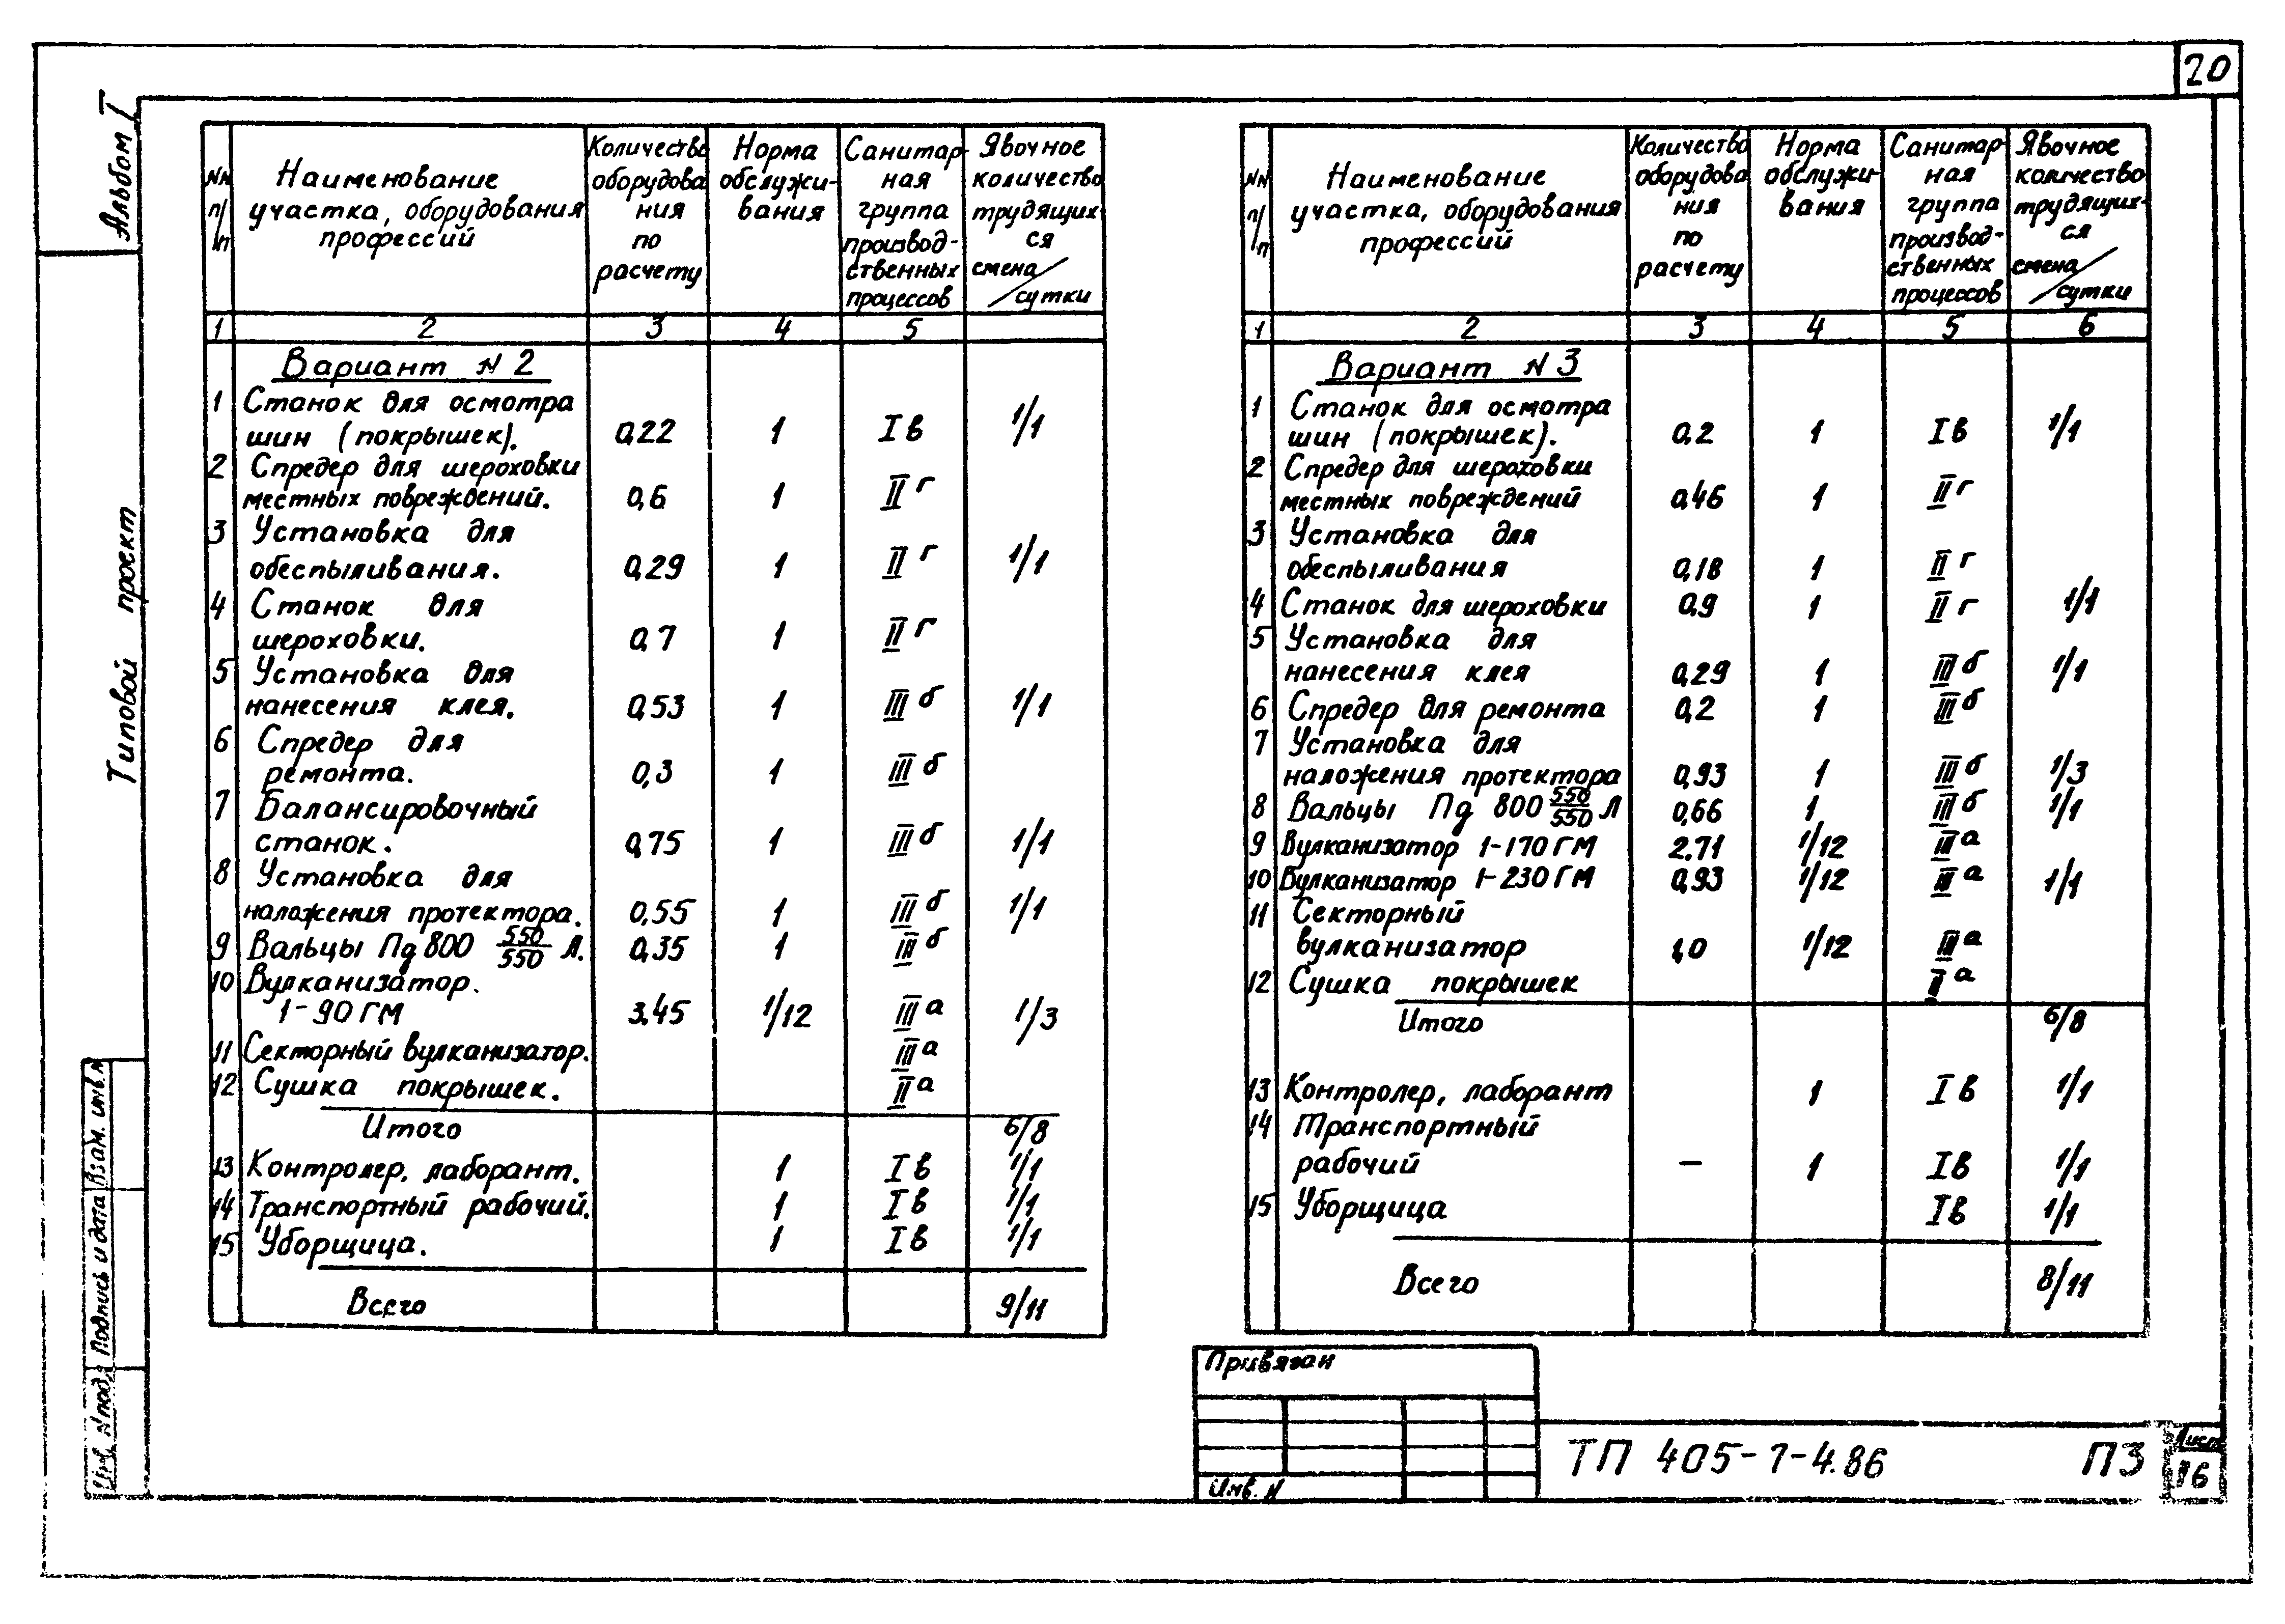 20
Альбом I
Типовой проект
Взам. инв. N
Подпись и дата
Инв. N подл
NN п/п
Наименование участка, оборудования профессий
Количество оборудования по расчету
Норма обслуживания
Санитарная группа производственных процессов
Явочное количество трудящихся смена/сутки
1 2 3 4 5
Вариант N 2
1 Станок для осмотра
шин (покрышек). 0,22 1 I в 1/1
2 Спредер для шероховки
местных повреждений. 0,6 1 II г
3 Установка для
обеспыливания. 0,29 1 II г 1/1
4 Станок для
шероховки. 0,7 1 II г
5 Установка для
нанесения клея. 0,53 1 III б 1/1
6 Спредер для
ремонта. 0,3 1 III б
7 Балансировочный
станок. 0,75 1 III б 1/1
8 Установка для
наложения протектора. 0,55 1 III б 1/1
9 Вальцы Пд 800 550/550 Л. 0,35 1 III б
10 Вулканизатор.
1-90 ГМ 3.45 1/12 III а 1/3
11 Секторный вулканизатор. III а
12 Сушка покрышек. II а
Итого 6/8
13 Контролер, лаборант. 1 I в 1/1
14 Транспортный рабочий. 1 I в 1/1
15 Уборщица. 1 I в 1/1
Всего 9/11
NN п/п
Наименование участка, оборудования профессий
Количество оборудования по расчету
Норма обслуживания
Санитарная группа производственных процессов
Явочное количество трудящихся смена/сутки
1 2 3 4 5 6
Вариант N 3
1 Станок для осмотра
шин (покрышек). 0,2 1 I в 1/1
2 Спредер для шероховки
местных повреждений 0,46 1 II г
3 Установка для
обеспыливания 0,18 1 II г
4 Станок для шероховки 0,9 1 II г 1/1
5 Установка для
нанесения клея 0,29 1 III б 1/1
6 Спредер для ремонта 0,2 1 III б
7 Установка для
наложения протектора 0,93 1 III б 1/3
8 Вальцы Пд 800 550/550 Л 0,66 1 III б 1/1
9 Вулканизатор 1-170 ГМ 2.71 1/12 III а
10 Вулканизатор 1-230 ГМ 0,93 1/12 III а 1/1
11 Секторный
вулканизатор 1,0 1/12 III а
12 Сушка покрышек II а
Итого 6/8
13 Контролер, лаборант 1 I в 1/1
14 Транспортный
рабочий — 1 I в 1/1
15 Уборщица I в 1/1
Всего 8/11
Привязан
Инв. N
ТП 405-7-4.86 ПЗ
Лист
16